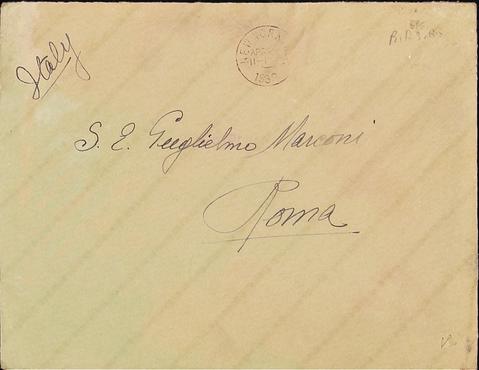 Italy
NEW YORK
APR
1930
S. E. Guglielmo Marconi
Roma